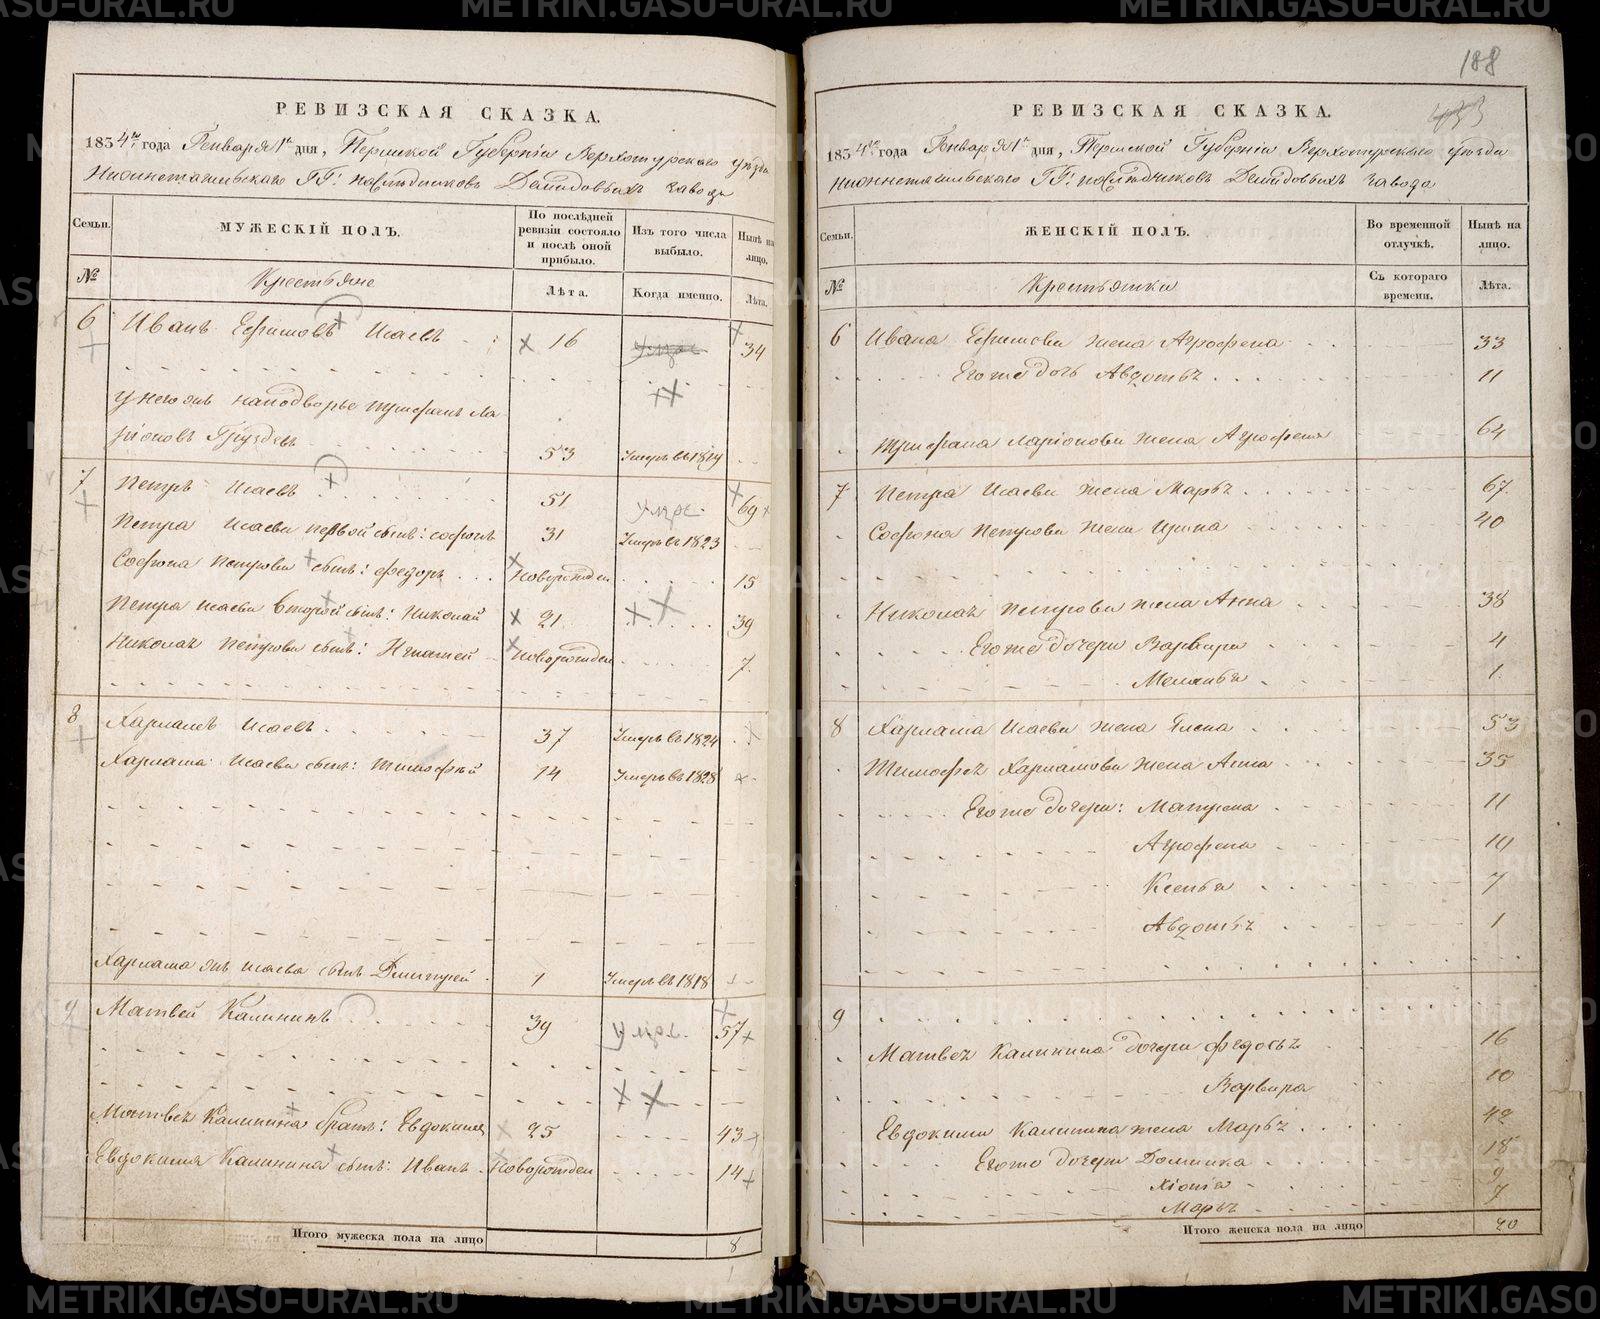 РЕВИЗСКАЯ СКАЗКА.
1834го года Генваря 1го дня, Пермской Губернiи Верхотурскаго уезда
Нижнетагильскаго ГГ: наследниковъ Демидовыхъ завода
Семьи.
МУЖЕСКІЙ ПОЛЪ.
По послѣдней ревизіи состояло и послѣ оной прибыло.
Изъ того числа выбыло.
Нынѣ на лицо.
№
Крестьяне
Лѣта.
Когда именно.
Лѣта.
6 Иванъ Ефимовъ Исаевъ 16 34
у него же на подворье Трифонъ Ла-
ріоновъ Груздевъ 53 Умеръ въ 1819
7 Петръ Исаевъ 51 умре 69
Петра Исаева первой сынъ: Софронъ 31 Умеръ въ 1823
Софрона Петрова сынъ: Федоръ Новорожден 15
Петра Исаева второй сынъ: Николай 21 39
Николая Петрова сынъ: Игнатей Новорожден 7
8 Харламъ Исаевъ 37 Умеръ въ 1824
Харлама Исаева сынъ: Тимофѣй 14 Умеръ въ 1828
Харлама же Исаева сынъ Дмитрей 1 Умеръ въ 1818
9 Матвей Калининъ 39 57
Матвея Калинина братъ: Евдокимъ 25 43
Евдокима Калинина сынъ: Иванъ Новорожден 14
Итого мужеска пола на лицо 8
188
РЕВИЗСКАЯ СКАЗКА.
1834го года Генваря 1го дня, Пермской Губернiи Верхотурскаго уезда
Нижнетагильскаго ГГ: наследниковъ Демидовыхъ завода
Семьи.
ЖЕНСКІЙ ПОЛЪ.
Во временной отлучкѣ.
Нынѣ на лицо.
№
Крестьянки
Съ котораго времени.
Лѣта.
6 Ивана Ефимова жена Агрофена 33
Его же дочь Авдотья 11
Трифана Ларіонова жена Агрофена 64
7 Петра Исаева жена Марья 67
Софрона Петрова жена Ирина 40
Николая Петрова жена Анна 38
Его же дочери Варвара 4
Меланья 1
8 Харлама Исаева жена Елена 53
Тимофея Харламова жена Анна 35
Его же дочери: Матрена 11
Агрофена 10
Ксенья 7
Авдотья 1
9
Матвея Калинина дочери Федосья 16
Варвара 10
Евдокима Калинина жена Марья 42
Его же дочери Домника 18
Хіонія 9
Марья 7
Итого женска пола на лицо 20
METRIKI.GASO-URAL.RU